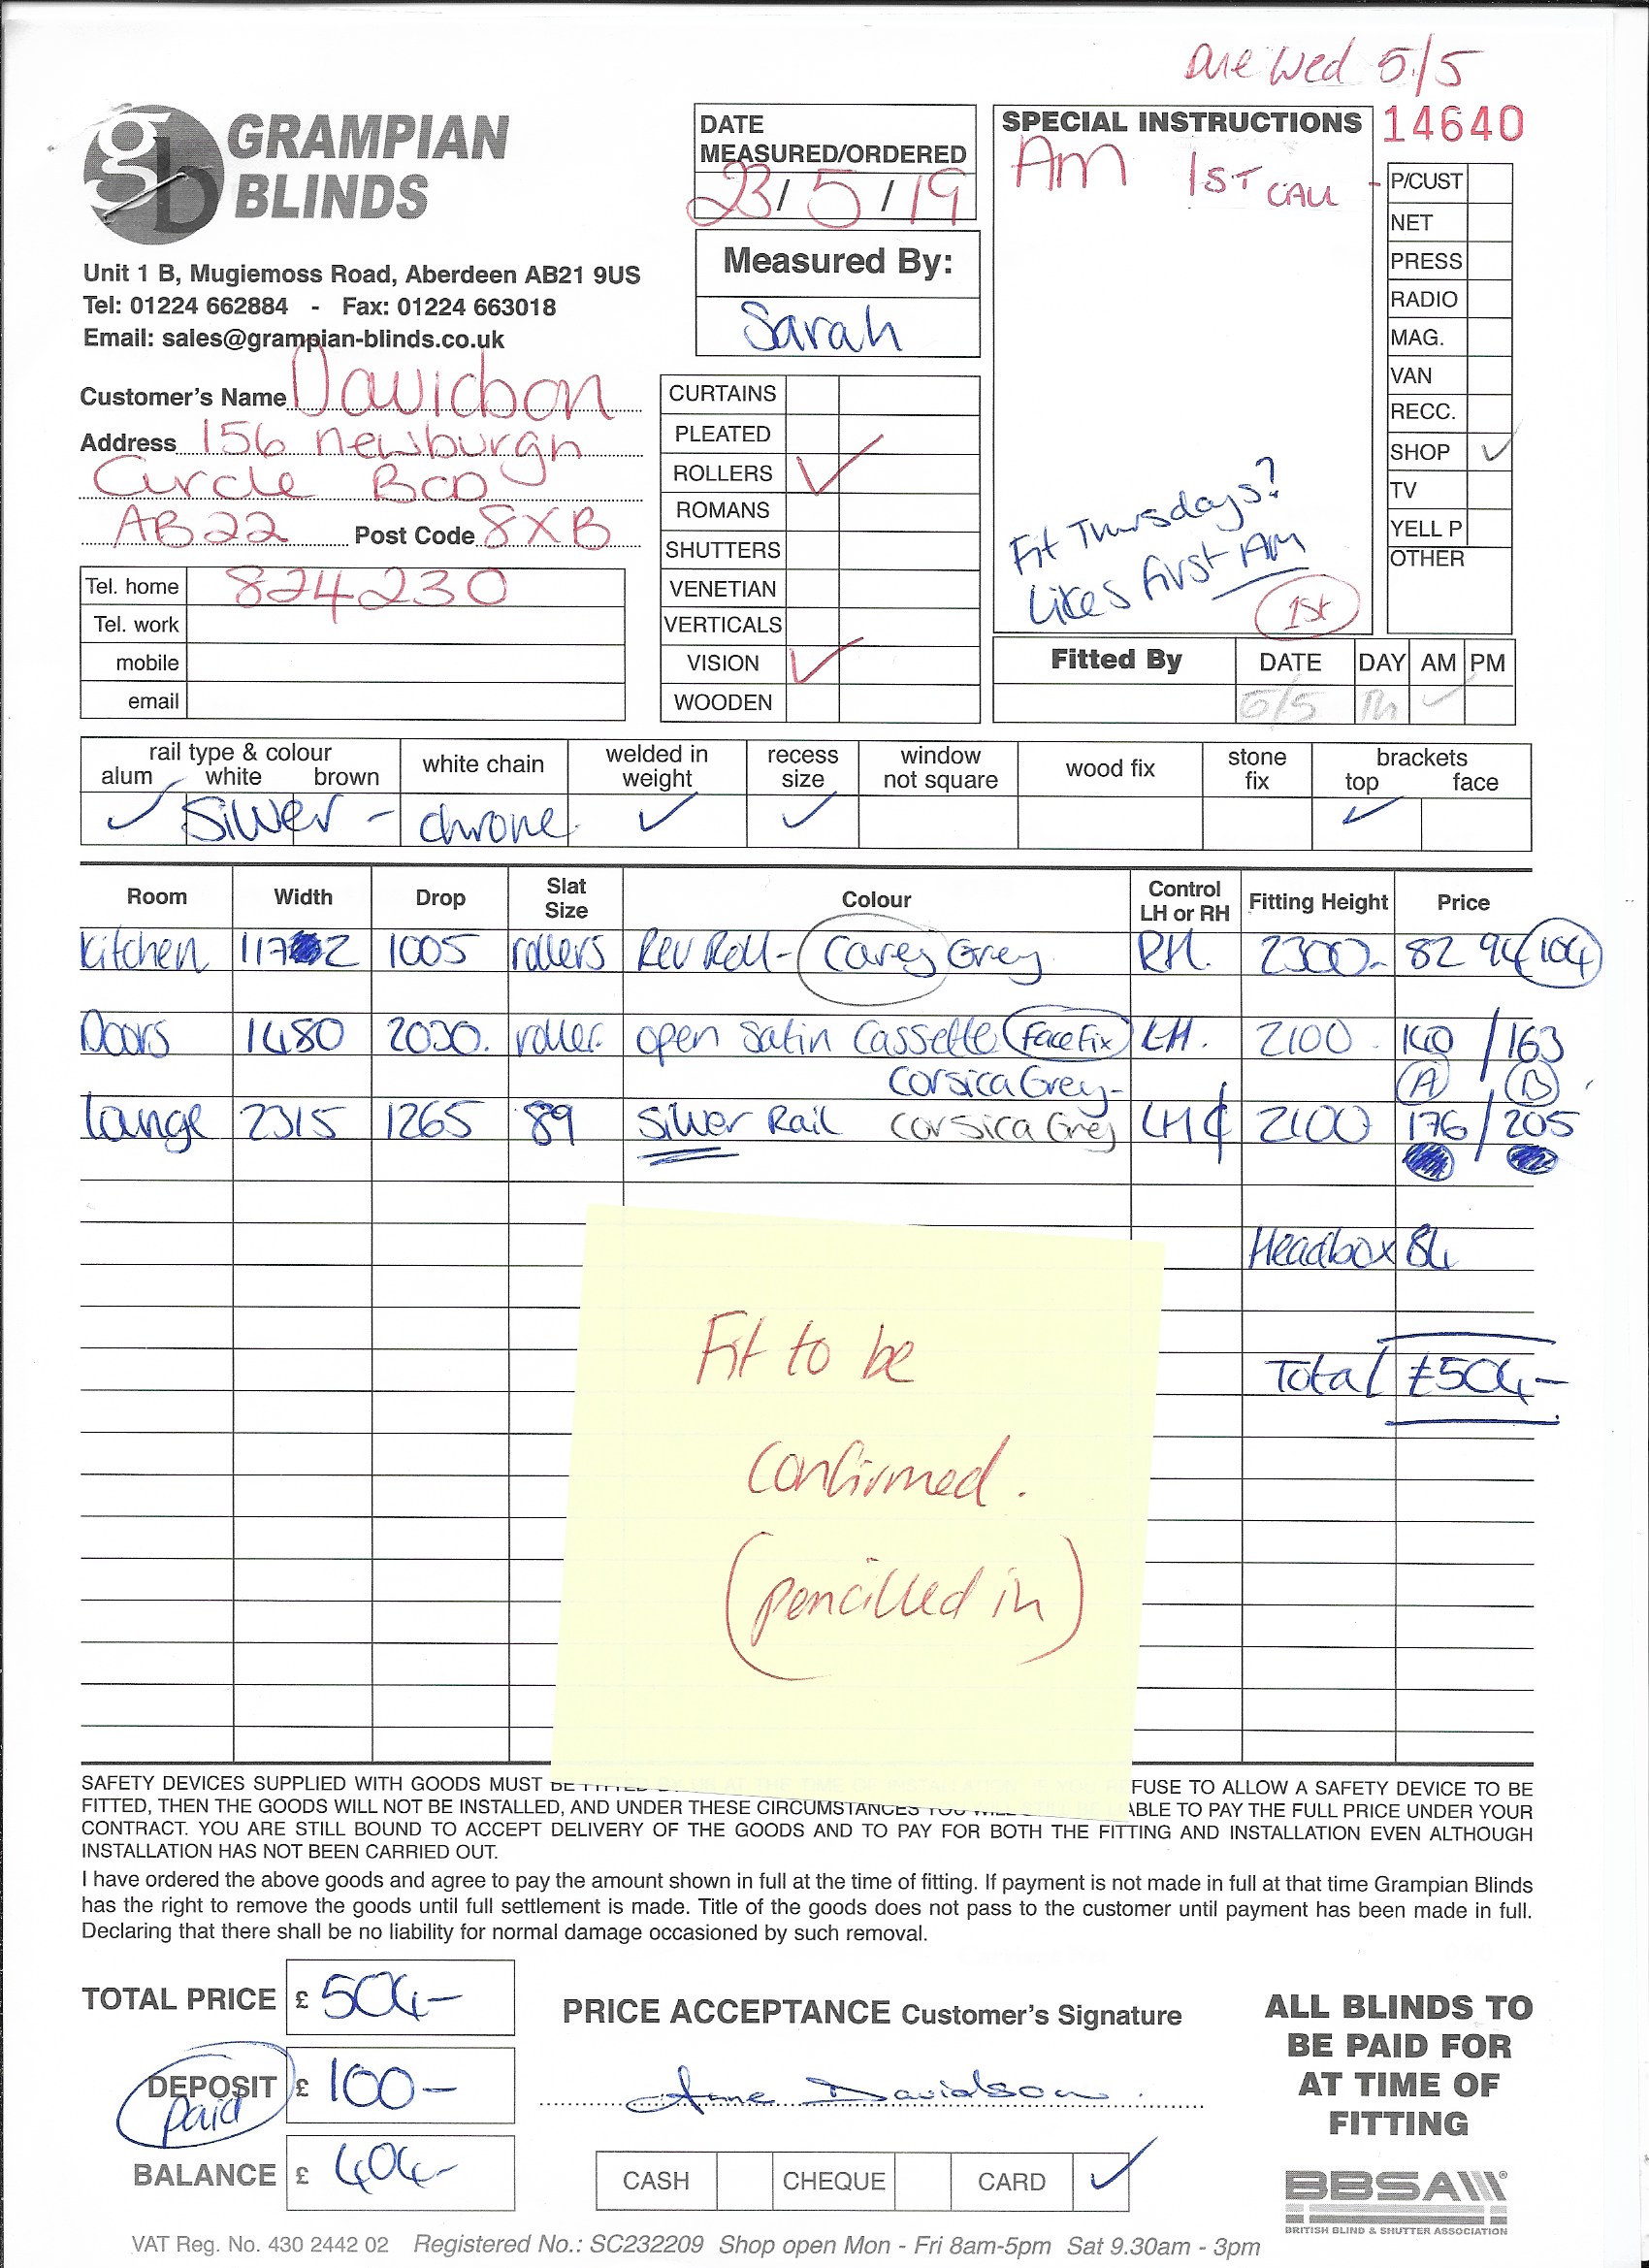 Due Wed 5/5
GRAMPIAN
BLINDS
gb
Unit 1 B, Mugiemoss Road, Aberdeen AB21 9US
Tel: 01224 662884 - Fax: 01224 663018
Email: sales@grampian-blinds.co.uk
Customer's Name Davidson
Address 156 Newburgh
Circle BOD
AB22 Post Code 8XB
Tel. home 824230
Tel. work
mobile
email
DATE
MEASURED/ORDERED
23/5/19
Measured By:
Sarah
CURTAINS
PLEATED
ROLLERS ✓
ROMANS
SHUTTERS
VENETIAN
VERTICALS
VISION ✓
WOODEN
SPECIAL INSTRUCTIONS
AM 1ST CALL
Fit Thursdays?
Likes first AM
1st
14640
P/CUST
NET
PRESS
RADIO
MAG.
VAN
RECC.
SHOP ✓
TV
YELL P
OTHER
Fitted By DATE DAY AM PM
6/5 Th ✓
rail type & colour white chain welded in weight recess size window not square wood fix stone fix brackets
alum white brown top face
✓ Silver - chrome ✓ ✓ ✓
Room Width Drop Slat Size Colour Control LH or RH Fitting Height Price
Kitchen 1172 1005 rollers Rev Roll - Carey Grey RH. 2300- 82 94 104
Doors 1480 2030. roller. open Satin Cassette Face Fix LH. 2100 140 / 163
Corsica Grey- A B
Lounge 2315 1265 89 Silver Rail Corsica Grey LH ¢ 2100 176 / 205
Headbox 84
Total £504-
Fit to be
confirmed.
(pencilled in)
SAFETY DEVICES SUPPLIED WITH GOODS MUST BE FUSE TO ALLOW A SAFETY DEVICE TO BE
FITTED, THEN THE GOODS WILL NOT BE INSTALLED, AND UNDER THESE CIRCUMSTANCES YOU WILL ABLE TO PAY THE FULL PRICE UNDER YOUR
CONTRACT. YOU ARE STILL BOUND TO ACCEPT DELIVERY OF THE GOODS AND TO PAY FOR BOTH THE FITTING AND INSTALLATION EVEN ALTHOUGH
INSTALLATION HAS NOT BEEN CARRIED OUT.
I have ordered the above goods and agree to pay the amount shown in full at the time of fitting. If payment is not made in full at that time Grampian Blinds
has the right to remove the goods until full settlement is made. Title of the goods does not pass to the customer until payment has been made in full.
Declaring that there shall be no liability for normal damage occasioned by such removal.
TOTAL PRICE £ 504-
DEPOSIT £ 100-
paid
BALANCE £ 404-
PRICE ACCEPTANCE Customer's Signature
Anne Davidson.
CASH CHEQUE CARD ✓
ALL BLINDS TO
BE PAID FOR
AT TIME OF
FITTING
BBSA
BRITISH BLIND & SHUTTER ASSOCIATION
VAT Reg. No. 430 2442 02 Registered No.: SC232209 Shop open Mon - Fri 8am-5pm Sat 9.30am - 3pm